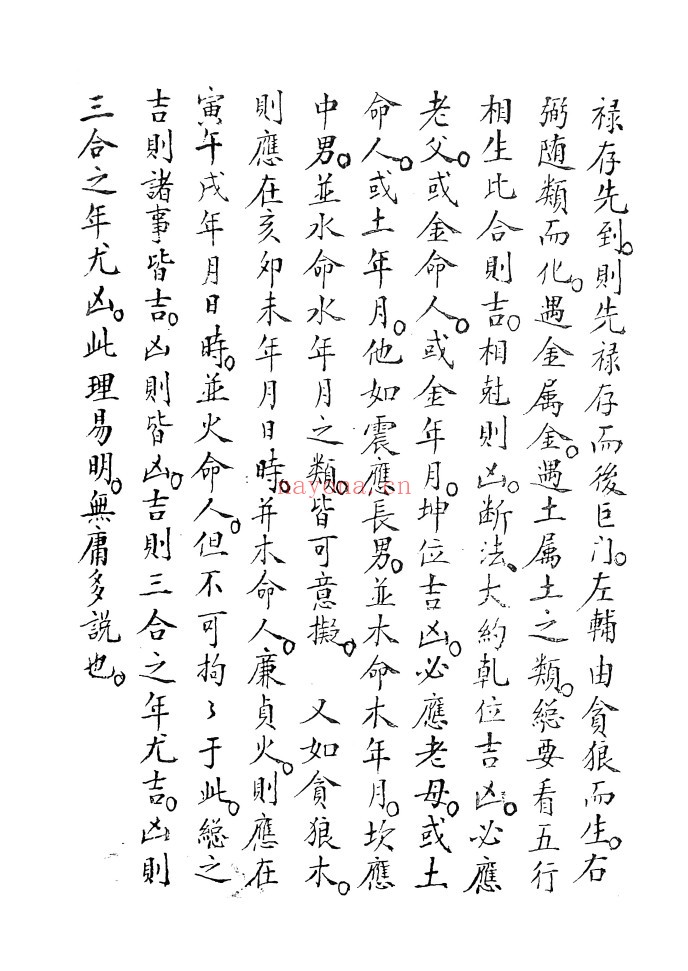 禄存先到。則先禄存而後巨门。左輔由貪狼而生。右
弼随類而化。遇金属金。遇土属土之類。緫要看五行
相生比合則吉。相尅則凶。断法。大約乹位吉凶。必應
老父。或金命人。或金年月。坤位吉凶。必應老母。或土
命人。或土年月。他如震應長男。並木命木年月。坎應
中男。並水命水年月之類。皆可意擬。　又如貪狼木。
則應在亥卯未年月日時。并木命人。廉貞火。則應在
寅午戌年月日時。並火命人。但不可拘〻于此。緫之
吉則諸事皆吉。凶則皆凶。吉則三合之年尤吉。凶則
三合之年尤凶。此理易明。無庸多説也。
nayona.cn